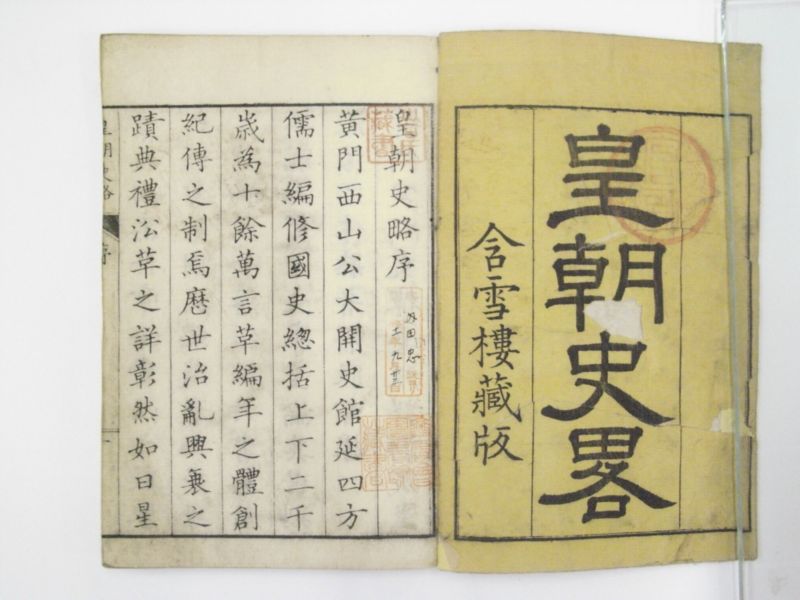 皇朝史畧
含雪樓藏版
皇朝史略序
黃門西山公大開史館延四方
儒士編修國史總括上下二千
歲為十餘萬言草編年之體創
紀傳之制焉歷世治亂興衰之
蹟典禮沿草之詳彰然如日星
皇朝史略
序